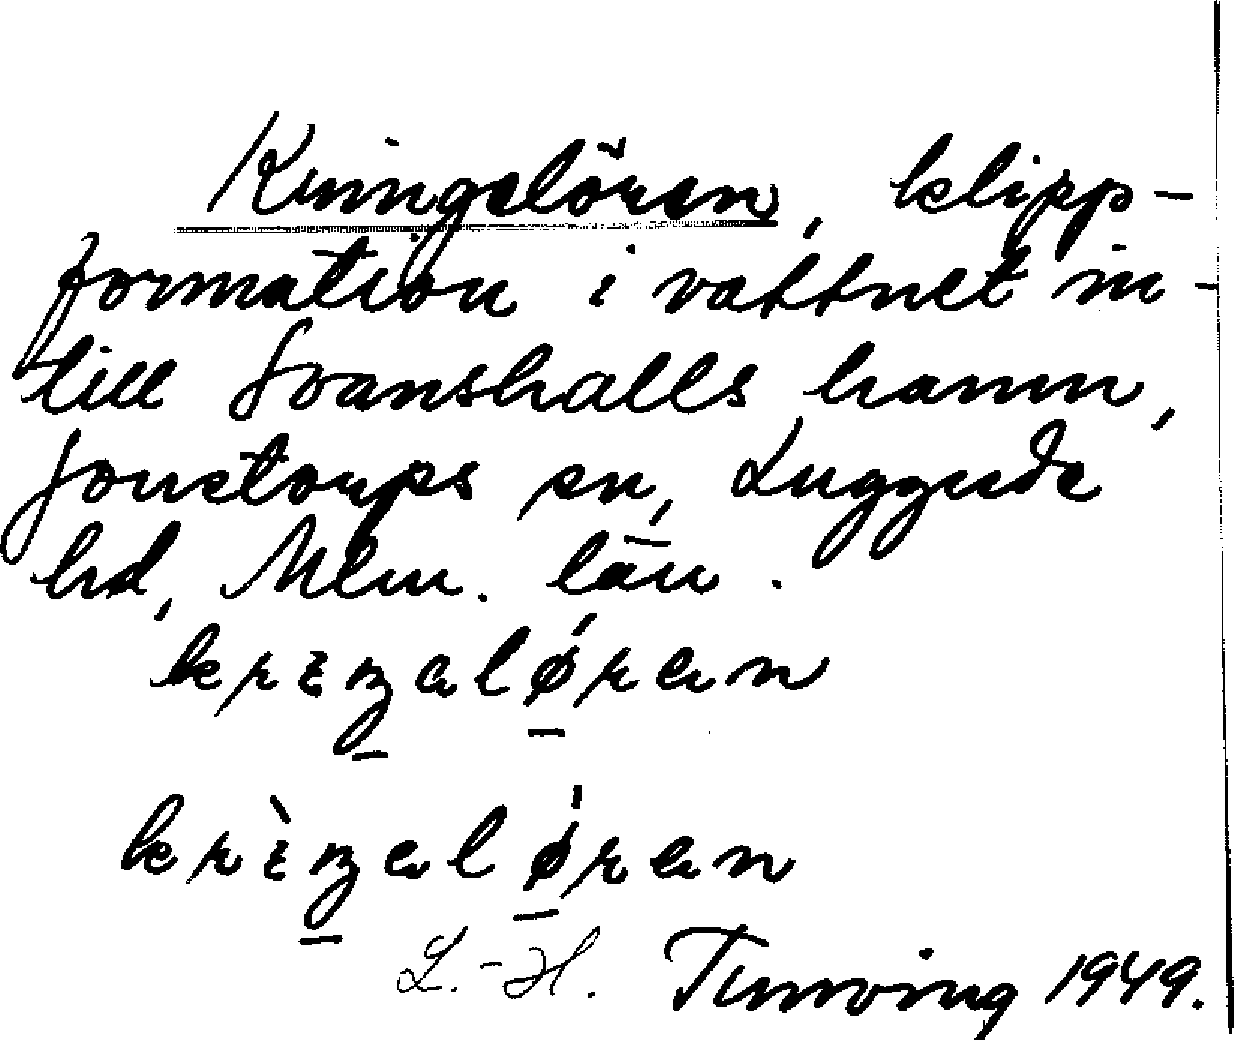 Kringelören, klipp-
formation i vattnet in-
till Svanshalls hamn,
Jonstorps sn, Luggude
hd, Mlm. län.
L.-H. Tunving 1949.